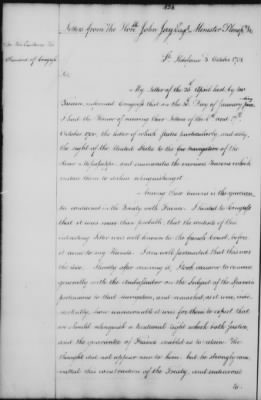 Letters from The Honble John Jay Esqr Minister Plenipo: &c
St. Ildefonso 3 October 1781
Sir
My Letter of the 25 April last, by
informed Congress that on the 30 Day of January
I had the Honor of receiving their Letters of the 6th and 17th
October 1780, the latter of which states particularly, and ably,
the right of the United States to the free navigation of the
River Mississippi, and enumerates the various Reasons which
induce them to decline relinquishing it.
Among these Reasons is the guarantee
contained in the Treaty with France. I hinted to Congress
that it was more than probable, that the contents of this
interesting Letter was well known to the french Court, before
it came to my Hands. I am well persuaded that this was
the case. Shortly after receiving it, I took occasion to converse
generally with the Ambassador on the Subject of the Spanish
pretensions to that navigation, and remarked, as it were, inci-
dentally, how unreasonable it was for them to expect that
we should relinquish a territorial right which both justice,
and the guarantee of France enabled us to retain. The
thought did not appear new to him, but he strongly com-
batted this construction of the Treaty, and endeavored
to